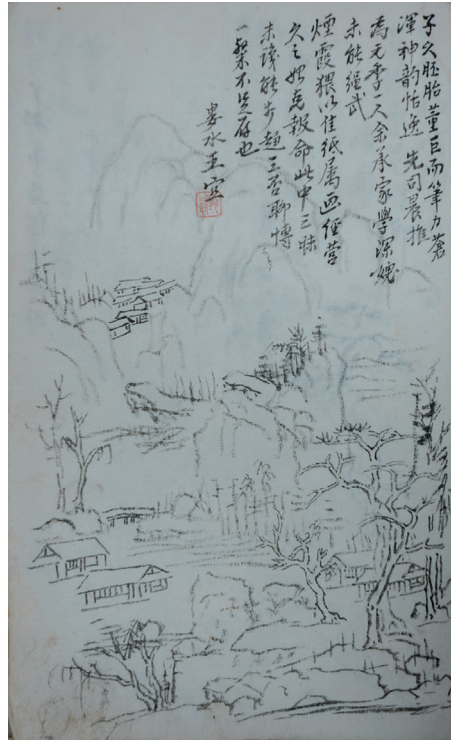 子久胚胎董巨而筆力蒼
渾神韵怡逸 先司農推
為元季一人余承家學深媿
未能繩武
煙霞猥以佳紙属画經營
久之始克報命此中三昧
未識能步趨否聊博
一粲不足存也
婁水王